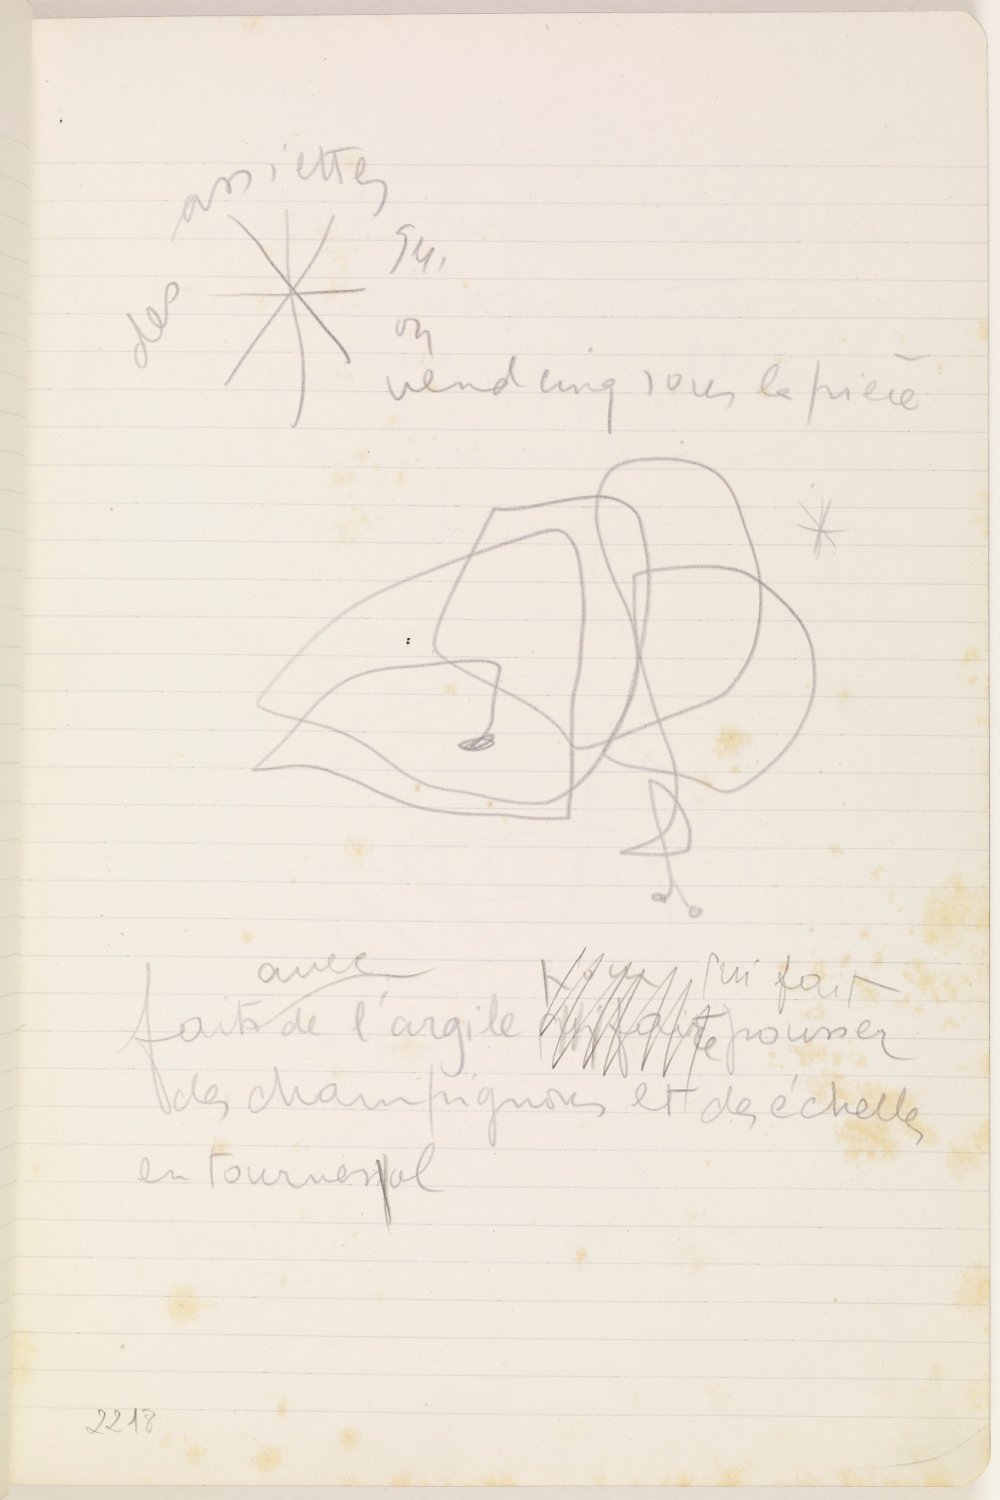 des assiettes
qu'
on
vend cinq sous la pièce
avec
faits de l'argile qui fait
pousser
des champignons et des échelles
en tournesol
2218